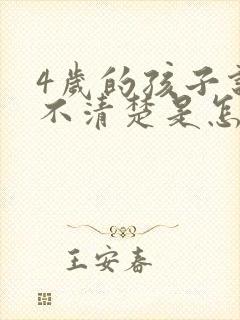 4歲的孩子
不清楚是怎
王安春